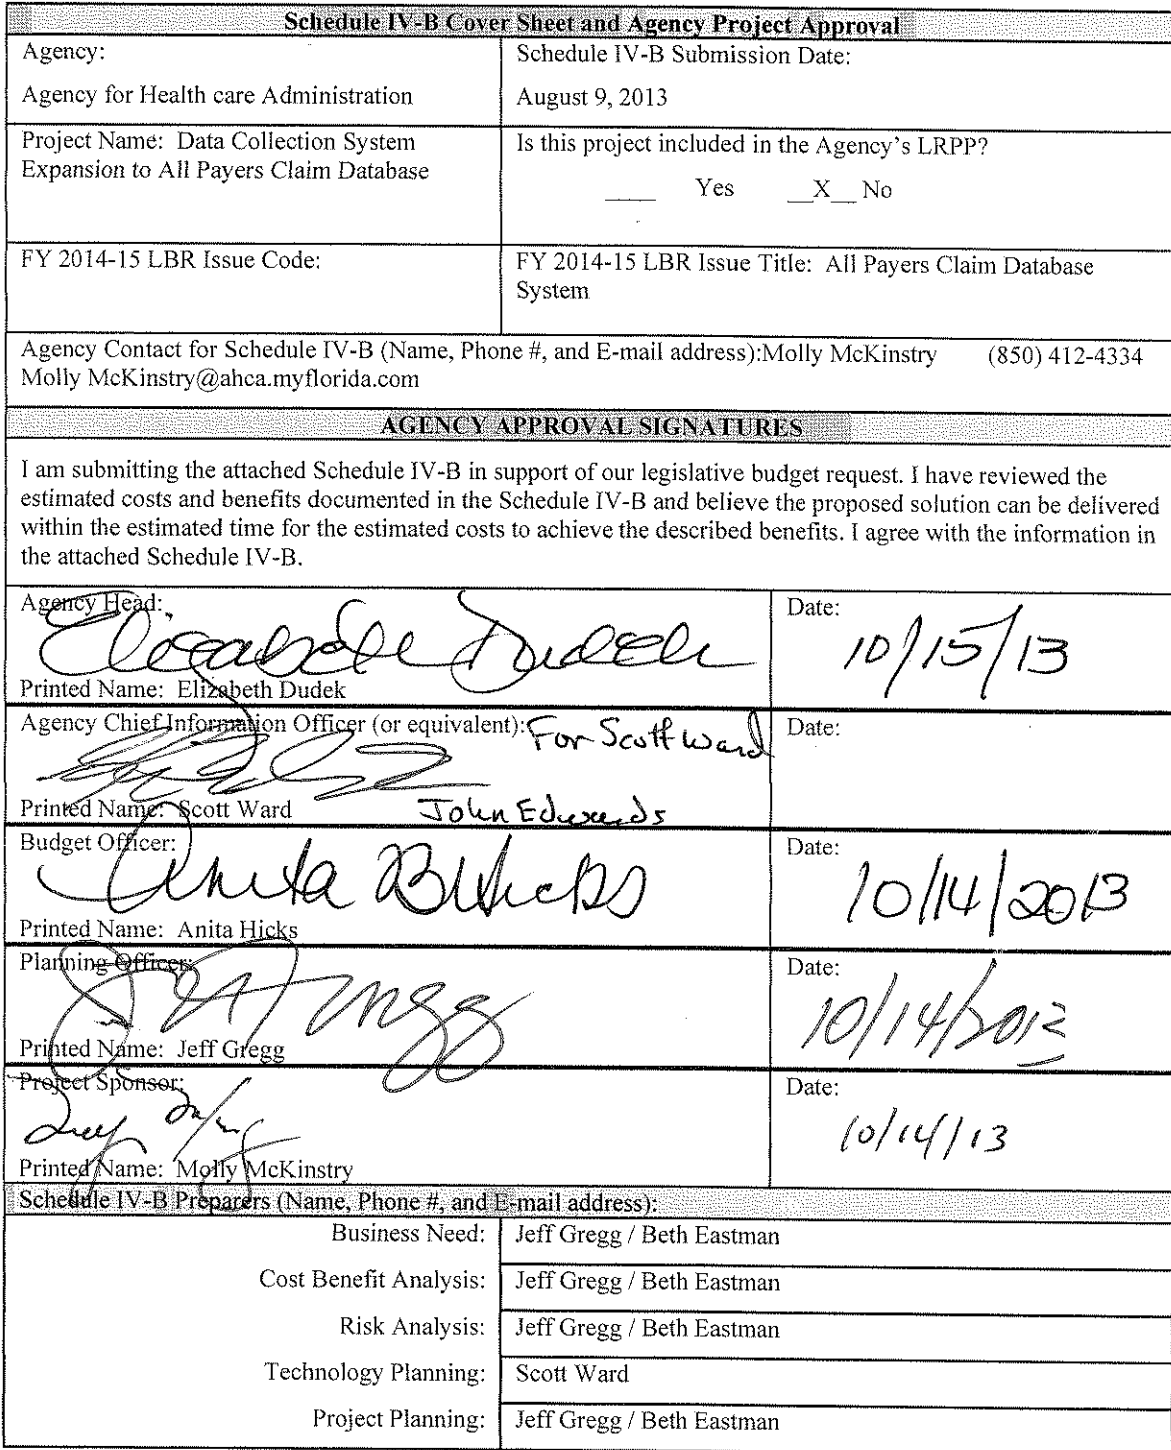 Schedule IV-B Cover Sheet and Agency Project Approval
Agency:
Agency for Health care Administration
Schedule IV-B Submission Date:
August 9, 2013
Project Name: Data Collection System
Expansion to All Payers Claim Database
Is this project included in the Agency's LRPP?
____ Yes __X__ No
FY 2014-15 LBR Issue Code:
FY 2014-15 LBR Issue Title: All Payers Claim Database
System
Agency Contact for Schedule IV-B (Name, Phone #, and E-mail address):Molly McKinstry (850) 412-4334
Molly McKinstry@ahca.myflorida.com
AGENCY APPROVAL SIGNATURES
I am submitting the attached Schedule IV-B in support of our legislative budget request. I have reviewed the
estimated costs and benefits documented in the Schedule IV-B and believe the proposed solution can be delivered
within the estimated time for the estimated costs to achieve the described benefits. I agree with the information in
the attached Schedule IV-B.
Agency Head:
Elizabeth Dudek
Printed Name: Elizabeth Dudek
Date:
10/15/13
Agency Chief Information Officer (or equivalent): For Scott Ward
Printed Name: Scott Ward John Edwards
Date:
Budget Officer:
Anita B Hicks
Printed Name: Anita Hicks
Date:
10/14/2013
Planning Officer:
Printed Name: Jeff Gregg
Date:
10/14/2013
Project Sponsor:
Printed Name: Molly McKinstry
Date:
10/14/13
Schedule IV-B Preparers (Name, Phone #, and E-mail address):
Business Need: Jeff Gregg / Beth Eastman
Cost Benefit Analysis: Jeff Gregg / Beth Eastman
Risk Analysis: Jeff Gregg / Beth Eastman
Technology Planning: Scott Ward
Project Planning: Jeff Gregg / Beth Eastman